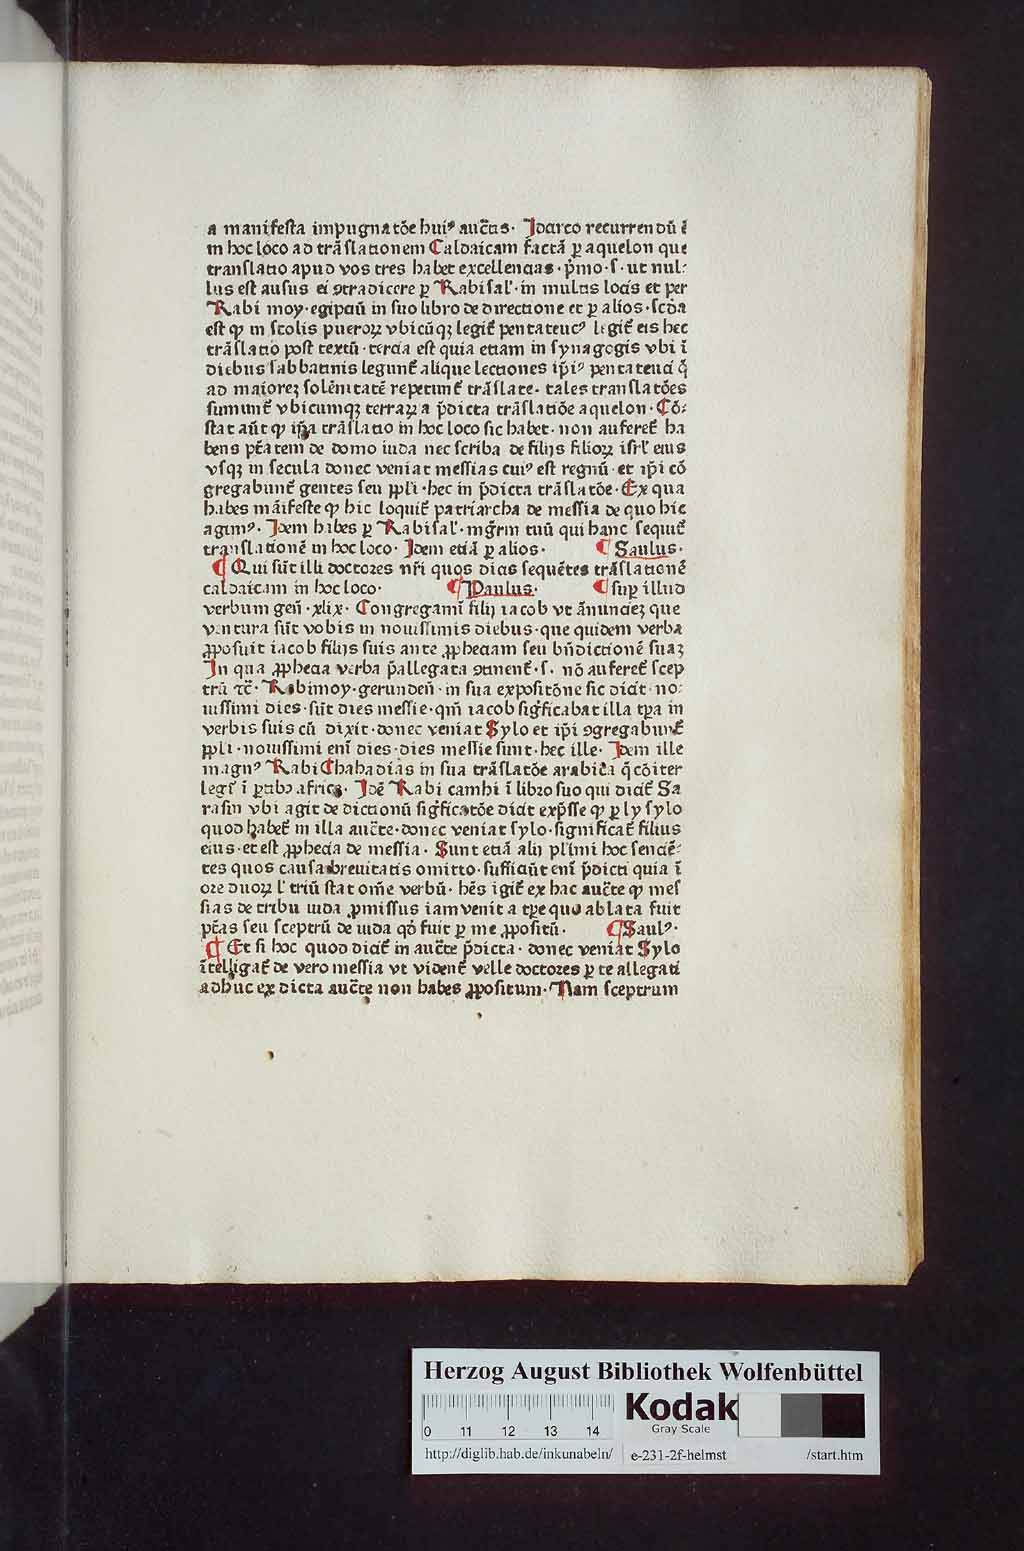 a manifesta impugnatōe huiꝰ auct̃is· Idcirco recurrendū ē
in hoc loco ad trāslationem Caldaicam factā ꝑ aquelon que
translatio apud vos tres habet excellencias· p̄mo·s·ut nul⸗
lus est ausus ei ꝯtradicere ꝑ Rabi sal'·in multis locis et per
Rabi moy·egipciū in suo libro de directione et ꝑ alios·scd̄a
est ꝙ in scolis pueroꝝ vbicūqꝫ legit̃ pentateucꝰ legit̃ eis hec
trāslatio post textū·tercia est quia etiam in synagogis vbi ī
diebus sabbatinis legunt̃ alique lectiones ip̄iꝰ pentateuci q̄
ad maioreꝫ solēnitatē repetunt̃ trāslate· tales translatōes
sumunt̃ vbicumqꝫ terraꝝ a p̄dicta trāslatiōe aquelon· Cō⸗
stat aūt ꝙ ip̄a trāslatio in hoc loco sic habet· non auferet̃ ha
bens pt̄atem de domo iuda nec scriba de filijs filioꝝ isrl' eius
vsqꝫ in secula donec veniat messias cuiꝰ est regnū·et ip̄i cō
gregabunt̃ gentes seu ppl̄i·hec in p̄dicta trāslatōe· Ex qua
habes māifeste ꝙ hic loquit̃ patriarcha de messia de quo hic
agimꝰ· Idem habes ꝑ Rabi sal'·mgr̄m tuū qui hanc sequit̃
translationē in hoc loco· Idem etiā ꝑ alios· ¶ Saulus·
¶ Qui sūt illi doctores nr̄i quos dicis sequētes trāslationē
caldaicam in hoc loco· ¶ Paulus· ¶ sup̄ illud
verbum gen̄·xlix· Congregamī filij iacob vt ānuncieꝫ que
ventura sūt vobis in nouissimis diebus·que quidem verba
ꝓposuit iacob filijs suis ante ꝓpheciam seu bn̄dictionē suaꝫ
In qua ꝓphecia verba p̄allegata ꝯtinent̃·s· nō auferet̃ scep
trū ⁊c̄· Rabi moy·gerunden̄·in sua expositōne sic dicit·no⸗
uissimi dies·sūt dies messie·qm̄ iacob sigficabat illa tp̄a in
verbis suis cū dixit·donec veniat Sylo et ip̄i ꝯgregabunt̃
ppl̄i·nouissimi enī dies·dies messie sunt·hec ille· Idem ille
magnꝰ Rabi Chahadias in sua trāslatōe arabica q̄ cōiter
legit̃ ī ꝑtibꝫ africe· Idē Rabi cambi ī libro suo qui dicit̃ Sa
rasin vbi agit de dictionū sigficatōe dicit exp̄sse ꝙ ꝑ ly sylo
quod habet̃ in illa auct̃e·donec veniat sylo·significat̃ filius
eius·et est ꝓphecia de messia· Sunt etiā alij pl'imi hoc sencie⸗
tes quos causa breuitatis omitto·sufficiūt enī p̄dicti quia ī
ore duoꝝ l' triū stat om̄e verbū· hēs igit̃ ex hac auct̃e ꝙ mes
sias de tribu iuda ꝓmissus iam venit a tp̄e quo ablata fuit
pt̄as seu sceptrū de iuda qd̄ fuit ꝑ me ꝓpositū· ¶Saulꝰ·
¶ Et si hoc quod dicit̃ in auct̃e p̄dicta· donec veniat Sylo
ītelligat̃ de vero messia vt vident̃ velle doctores ꝑ te allegati
adhuc ex dicta auct̃e non habes ꝓpositum· Nam sceptrum
Herzog August Bibliothek Wolfenbüttel
Kodak
Gray Scale
0 11 12 13 14
http://diglib.hab.de/inkunabeln/ e-231-2f-helmst /start.htm